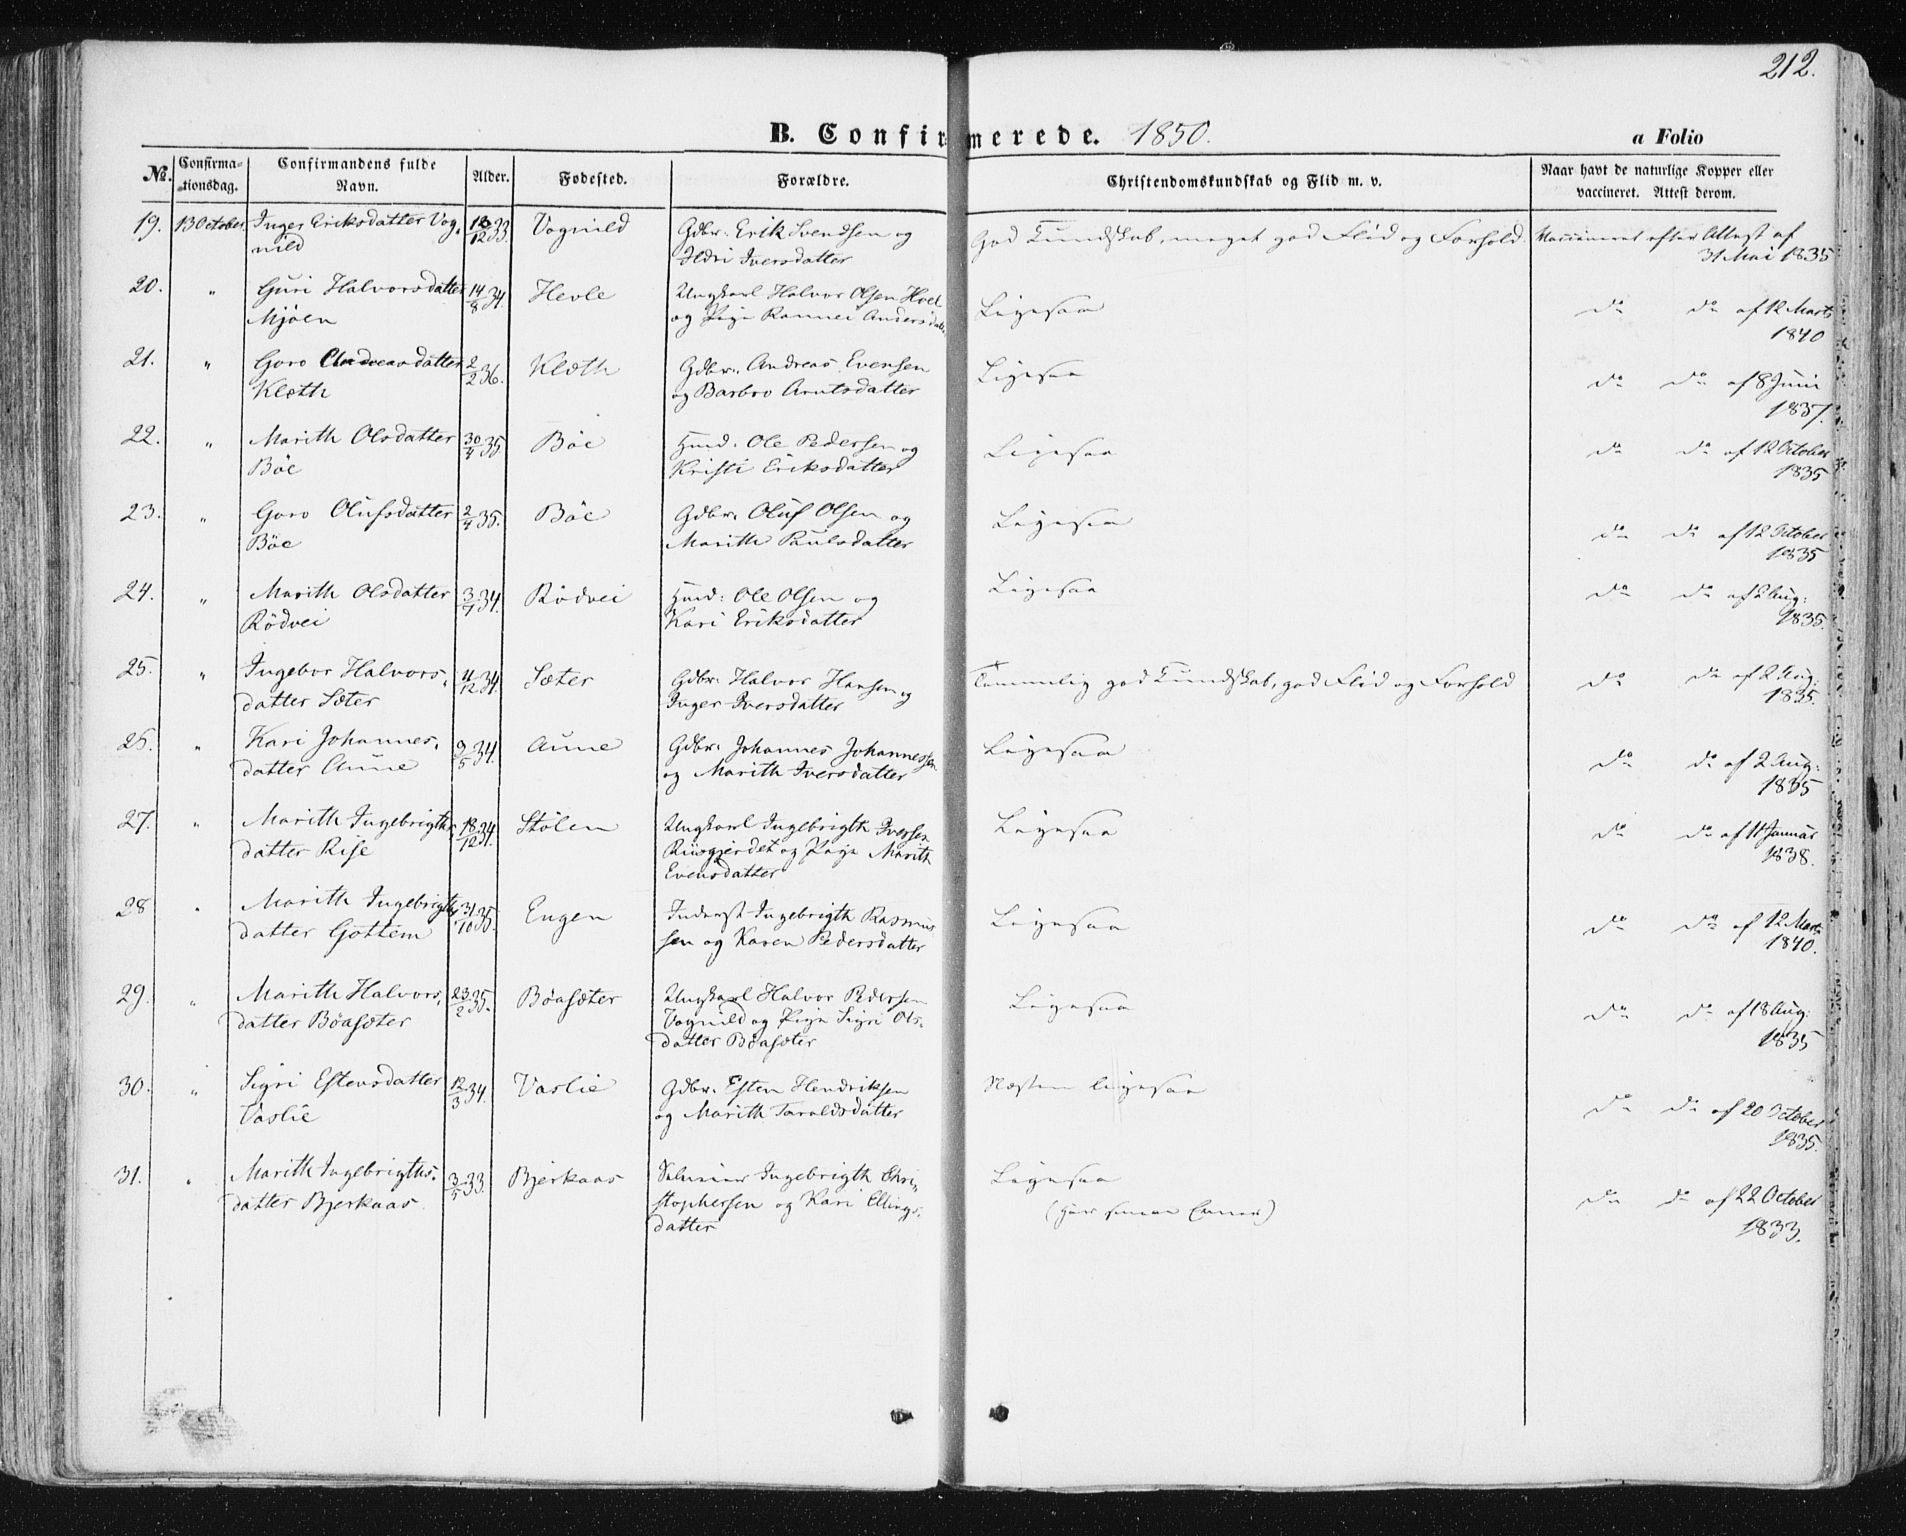 212.
B. Confirmerede. 1850. a Folio
No. Confirmationsdag. Confirmandens fulde Navn. Alder. Fødested. Forældre. Christendomskundskab og Flid m. v. Naar havt de naturlige Kopper eller vaccineret. Attest derom.
19. 13 October Inger Eriksdatter Vog- 18/12 33. Vognild Gdbr: Erik Svendsen og God Kundskab, meget god Flid og Forhold. Vaccineret efter Attest af
nild Ildri Iversdatter 31 Mai 1835
20. " Guri Halvorsdatter 14/8 34. Hevle Ungkarl Halvor Olsen Hoel Ligesaa do do af 12 Marts
Mjøen og Pige Rannei Andersdatr 1840
21. " Goro Andreasdatter 2/2 36. Kleth Gdbr. Andreas Evensen Ligesaa do do af 8 Juni
Kleth og Barbro Arntsdatter 1837.
22. " Marith Olsdatter 30/4 35. Böe Husmd: Ole Pedersen og Ligesaa do do af 12 October
Böe Kristi Eriksdatter 1835
23. " Goro Olufsdatter 2/4 35. Böe Gdbr. Oluf Olsen og Ligesaa do do af 12 October
Böe Marith Paulsdatter 1835
24. " Marith Olsdatter 3/7 34. Rödvei Husmd: Ole Olsen og Ligesaa do do af 2 Aug:
Rödvei Kari Eriksdatter 1835.
25. " Ingebor Halvors- 11/12 34. Sæter Gdbr: Halvor Hansen og Temmelig god Kundskab, god Flid og Forhold do do af 2 Aug:
datter Sæter Inger Iversdatter 1835.
26. " Kari Johannes- 9/5 34. Aune Gdbr: Johannes Johannessen Ligesaa do do af 2 Aug:
datter Aune og Marith Iversdatter 1835
27. " Marith Ingebrigths- 18/12 34. Stölen Ungkarl Ingebrigth Iversen Ligesaa do do af 11 Januar
datter Rise Riisgjerdet og Pige Marith 1838.
Evensdatter
28 " Marith Ingebrigths- 31/10 35. Engen Inderst Ingebrigth Rasmus- Ligesaa do do af 12 Marts
datter Gottem sen og Karen Pedersdatter 1840.
29. " Marith Halvors- 23/2 35. Böasæter Ungkarl Halvor Pedersen Ligesaa do do af 18 Aug:
datter Böasæter Vognild og Pige Sigri Ols- 1835
datter Böasæter
30. " Sigri Estensdatter 12/3 34. Vaslie Gdbr: Esten Hendriksen Næsten ligesaa do do af 20 October
Vaslie og Marith Taraldsdatter 1835.
31. " Marith Ingebrigths- 3/5 33. Bjerkaas Ingebrigth Chri- Ligesaa do do af 22 October
datter Bjerkaas stophersen og Kari Ellings- 1833.
datter